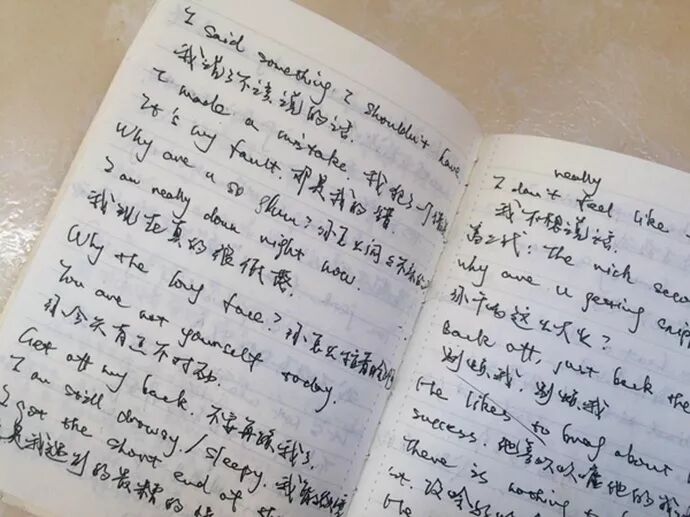 I said something I shouldn't have
我说了不该说的话.
I made a mistake. 我犯了一个错
It's my fault. 那是我的错.
Why are u so glum? 你怎么闷闷不乐
I am really down right now.
我现在真的很低落.
Why the long face? 你怎么拉着
You are not yourself today.
你今天有点不对劲.
Get off my back. 不要再烦我了.
I am still drowsy / sleepy. 我
I got the short end of
是我遇到的最糟的
really
I don't feel like
我不想说话.
富二代: The rich seco
why are u getting snipp
你干嘛这么大火?
Back off, just back the
别烦我, 别烦我
He likes to brag about
success. 他喜欢吹嘘他的成
There is nothing to
He